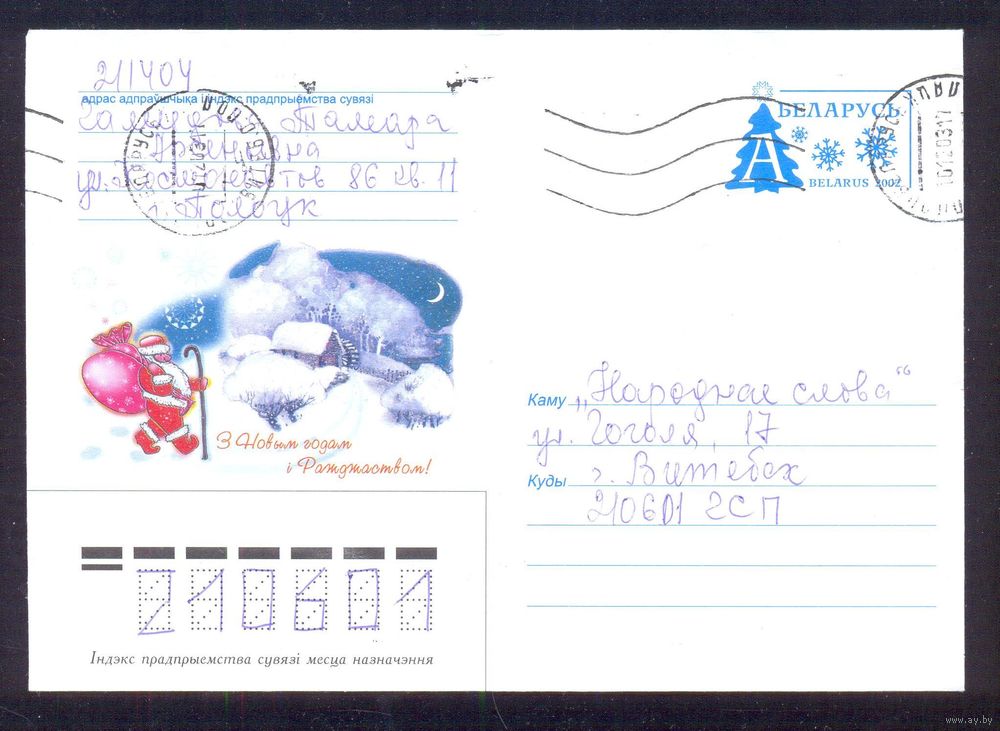 211404
адрас адпраўшчыка і індэкс прадпрыемства сувязі
Тамара
86 кв. 11
г. Полоцк
БЕЛАРУСЬ
А
BELARUS 2002
З Новым годам
і Ражджаством!
Каму „Народнае слова“
ул. Гоголя, 17
Куды г. Витебск
210601 ГСП
210601
Індэкс прадпрыемства сувязі месца назначэння
www.ay.by